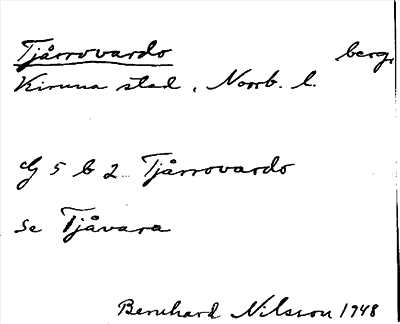 Tjårrovardo berg,
Kiruna stad, Norrb. l.
G 5 b 2 Tjårrovardo
se Tjåvara
Bernhard Nilsson 1948